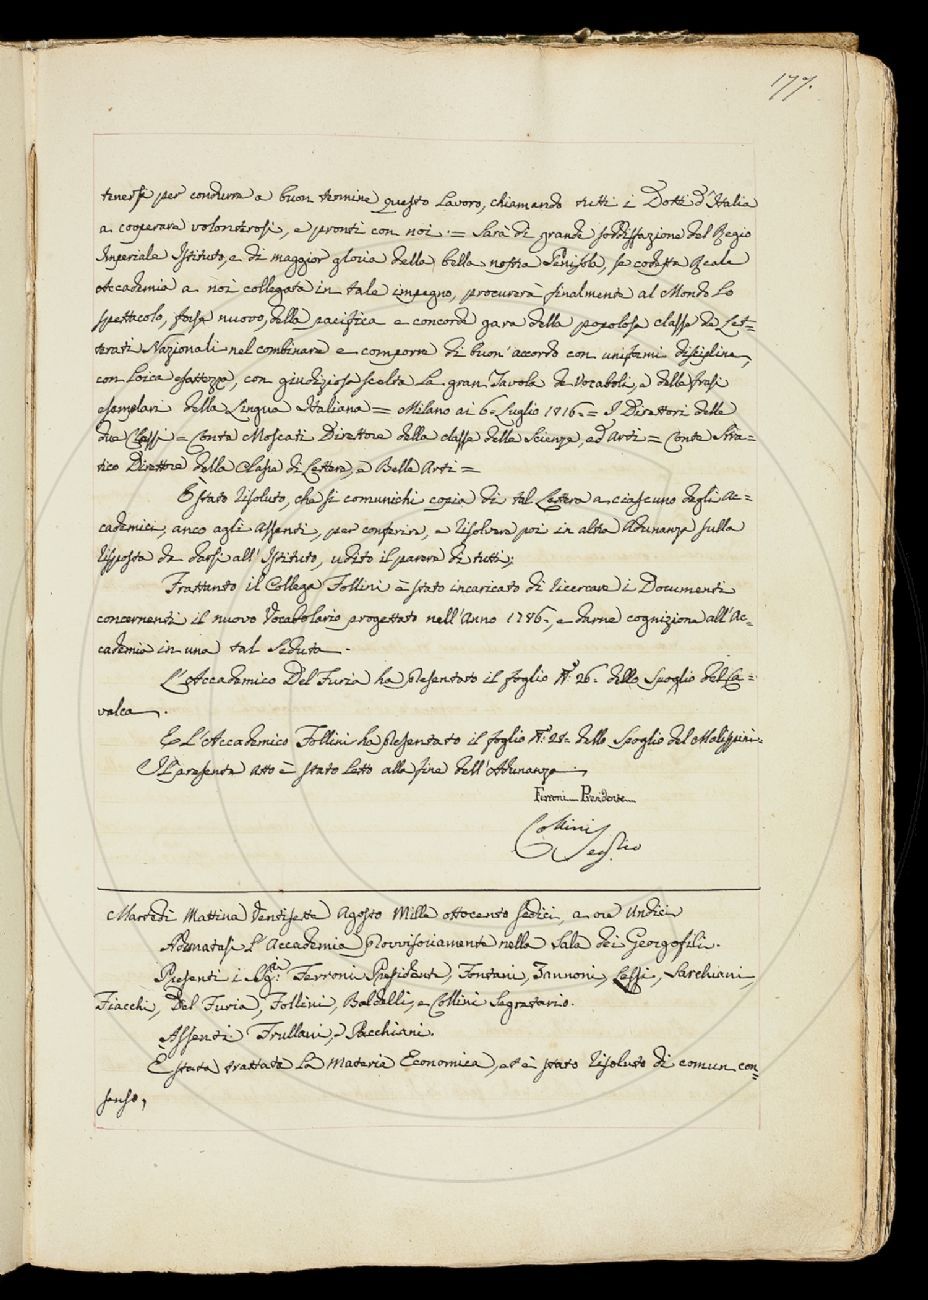 177.
tenersi per condurre a buon termine questo Lavoro, chiamando tutti i Dotti d'Italia
a cooperare volonterosi, e pronti con noi = Sarà di grande soddisfazione del Regio
Imperiale Istituto, e di maggior gloria della bella nostra Penisola, se codesta Reale
Accademia a noi collegata in tale impegno, procurerà finalmente al Mondo lo
spettacolo, forse nuovo, della pacifica e concorde gara della popolosa classe de Let=
terati Nazionali nel combinare e comporre di buon'accordo con uniforme disciplina,
con Loica esattezza, con giudiziosa scelta la gran Tavola de Vocaboli, e delle frasi
esemplari della Lingua Italiana = Milano ai 6. Luglio 1816. = I Direttori delle
due Classi = Conte Moscati Direttore della classe delle Scienze, ed Arti = Conte Stra=
tico Direttore della Classe di Lettere, e Belle Arti =
È stato risoluto, che si comunichi copia di tal Lettera a ciascuno degli Ac=
cademici, anco agli Assenti, per conferire, e risolvere poi in altra Adunanza sulla
risposta da darsi all'Istituto, udito il parere di tutti;
Frattanto il Collega Follini è stato incaricato di ricercare i Documenti
concernenti il nuovo Vocabolario progettato nell'Anno 1786., e darne cognizione all'Ac=
cademia in una tal Seduta.
L'Accademico Del Furia ha presentato il foglio N.° 26. dello Spoglio del Ca=
valca.
E L'Accademico Follini ha presentato il foglio N.° 28. dello Spoglio del Malispini.
Il presente Atto è stato letto alla fine dell'Adunanza.
Ferroni Presidente
Collini Segrio
Martedì Mattina Ventisette Agosto Mille ottocento sedici, a ore Undici
Adunatasi L'Accademia provvisoriamente nella Sala dei Georgofili.
Presenti i Sigri Ferroni Presidente, Fontani, Zannoni, Lessi, Sarchiani,
Fiacchi, Del Furia, Follini, Baldelli, e Collini Segretario.
Assenti Frullani, e Pacchiani.
È stata trattata la Materia Economica, ed è stato risoluto di comun con=
senso,